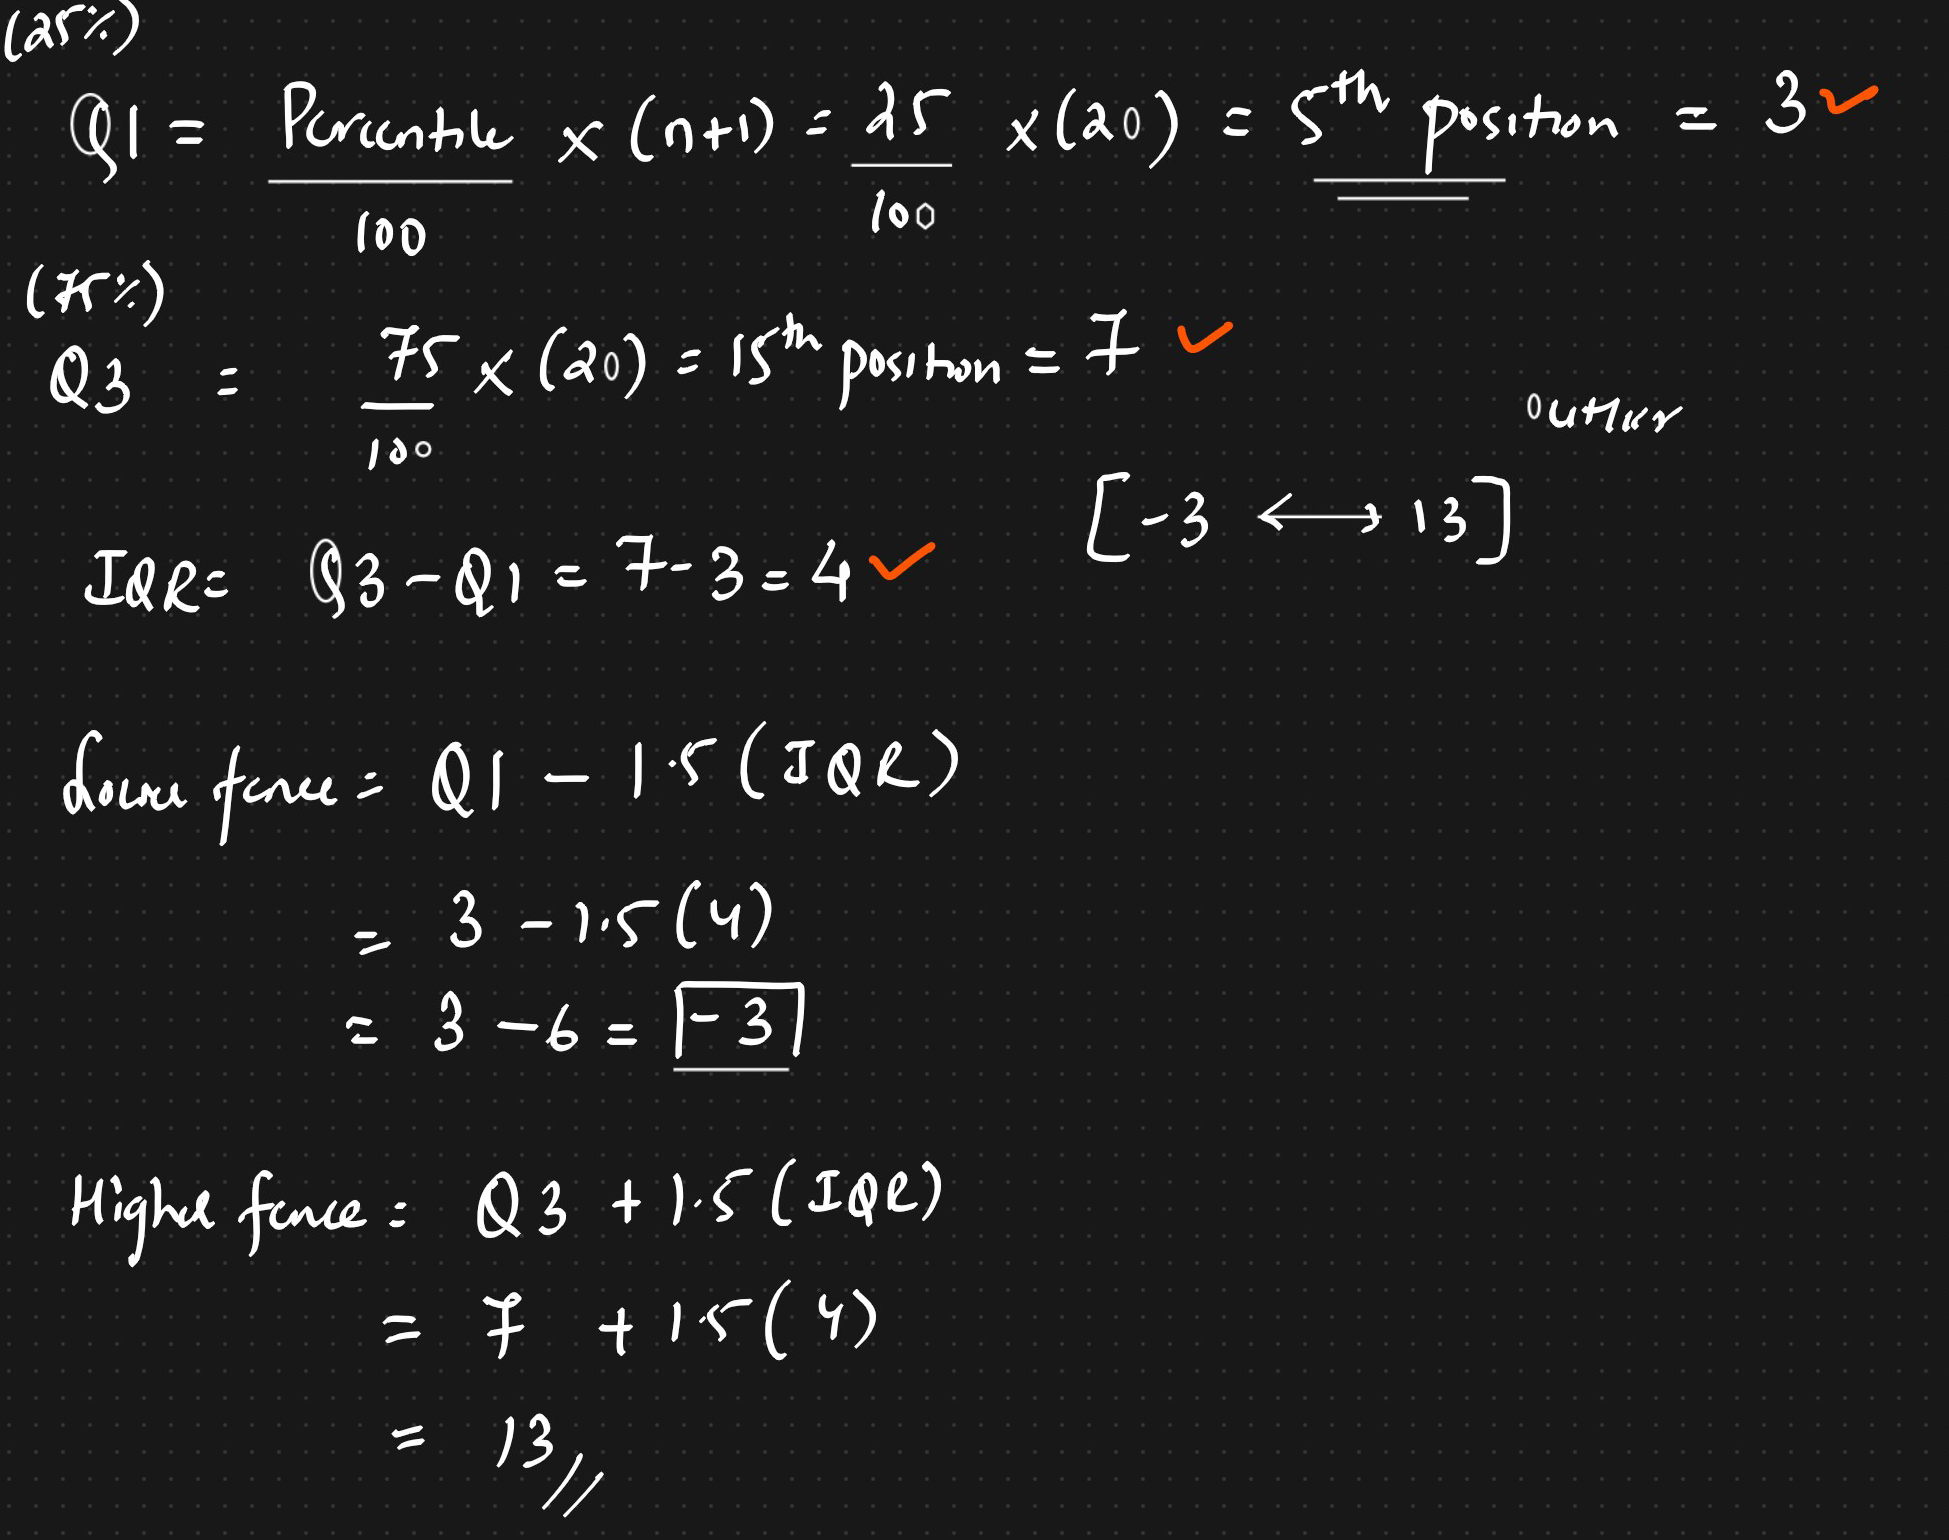 (25%)
Q1 = Percentile / 100 × (n+1) = 25 / 100 × (20) = 5th position = 3 ✓
(75%)
Q3 = 75 / 100 × (20) = 15th position = 7 ✓
Outlier
[-3 ⟷ 13]
IQR = Q3 - Q1 = 7 - 3 = 4 ✓
Lower fence = Q1 - 1.5 (IQR)
= 3 - 1.5 (4)
= 3 - 6 = -3
Higher fence = Q3 + 1.5 (IQR)
= 7 + 1.5 (4)
= 13 //